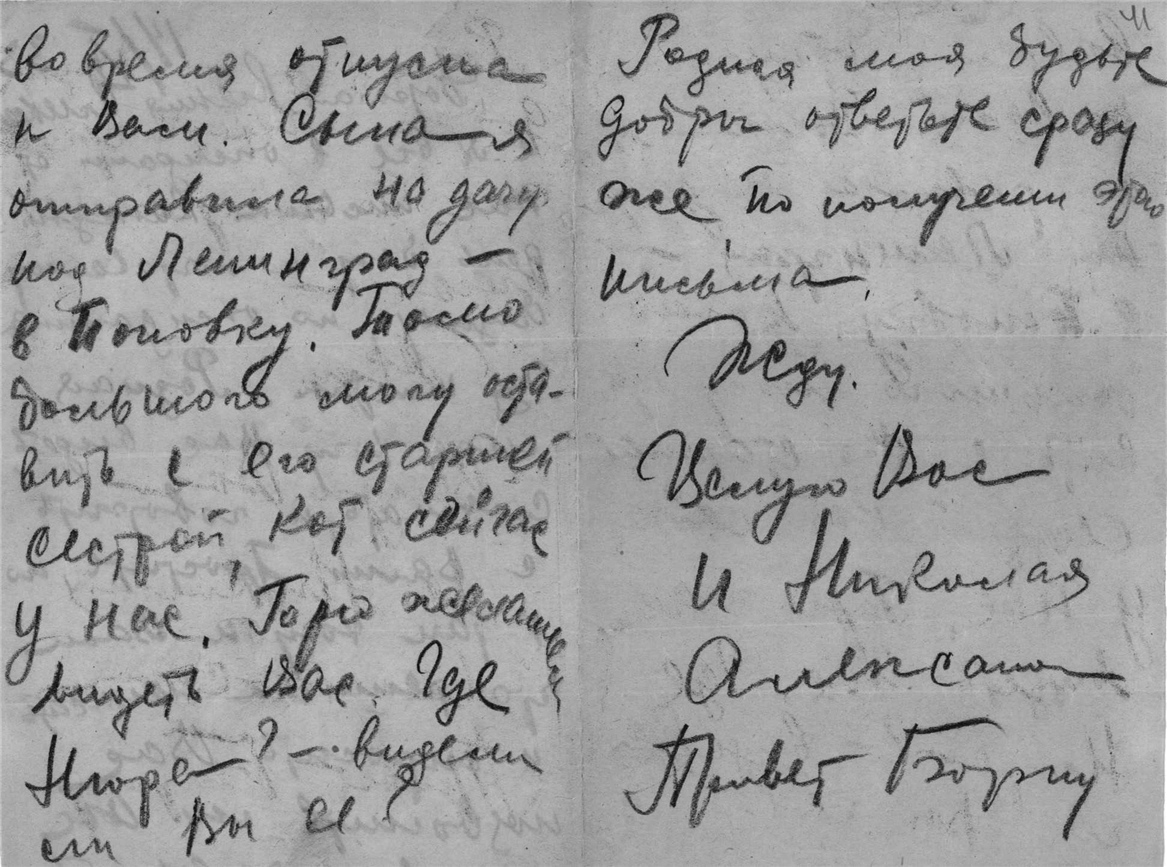 Во время отпуска
к Вам. Сына я
отправила на дачу
под Ленинград —
в Поповку. Только
большого могу оста-
вить с его старшей
сестрой, кот сейчас
у нас. Горю желанием
видеть Вас. Где
Нюра? — видели
ли Вы её?
41
Родная моя будьте
добры ответьте сразу
же по получении этого
письма.
Жду.
Целую Вас
и Николая
Привет Борису